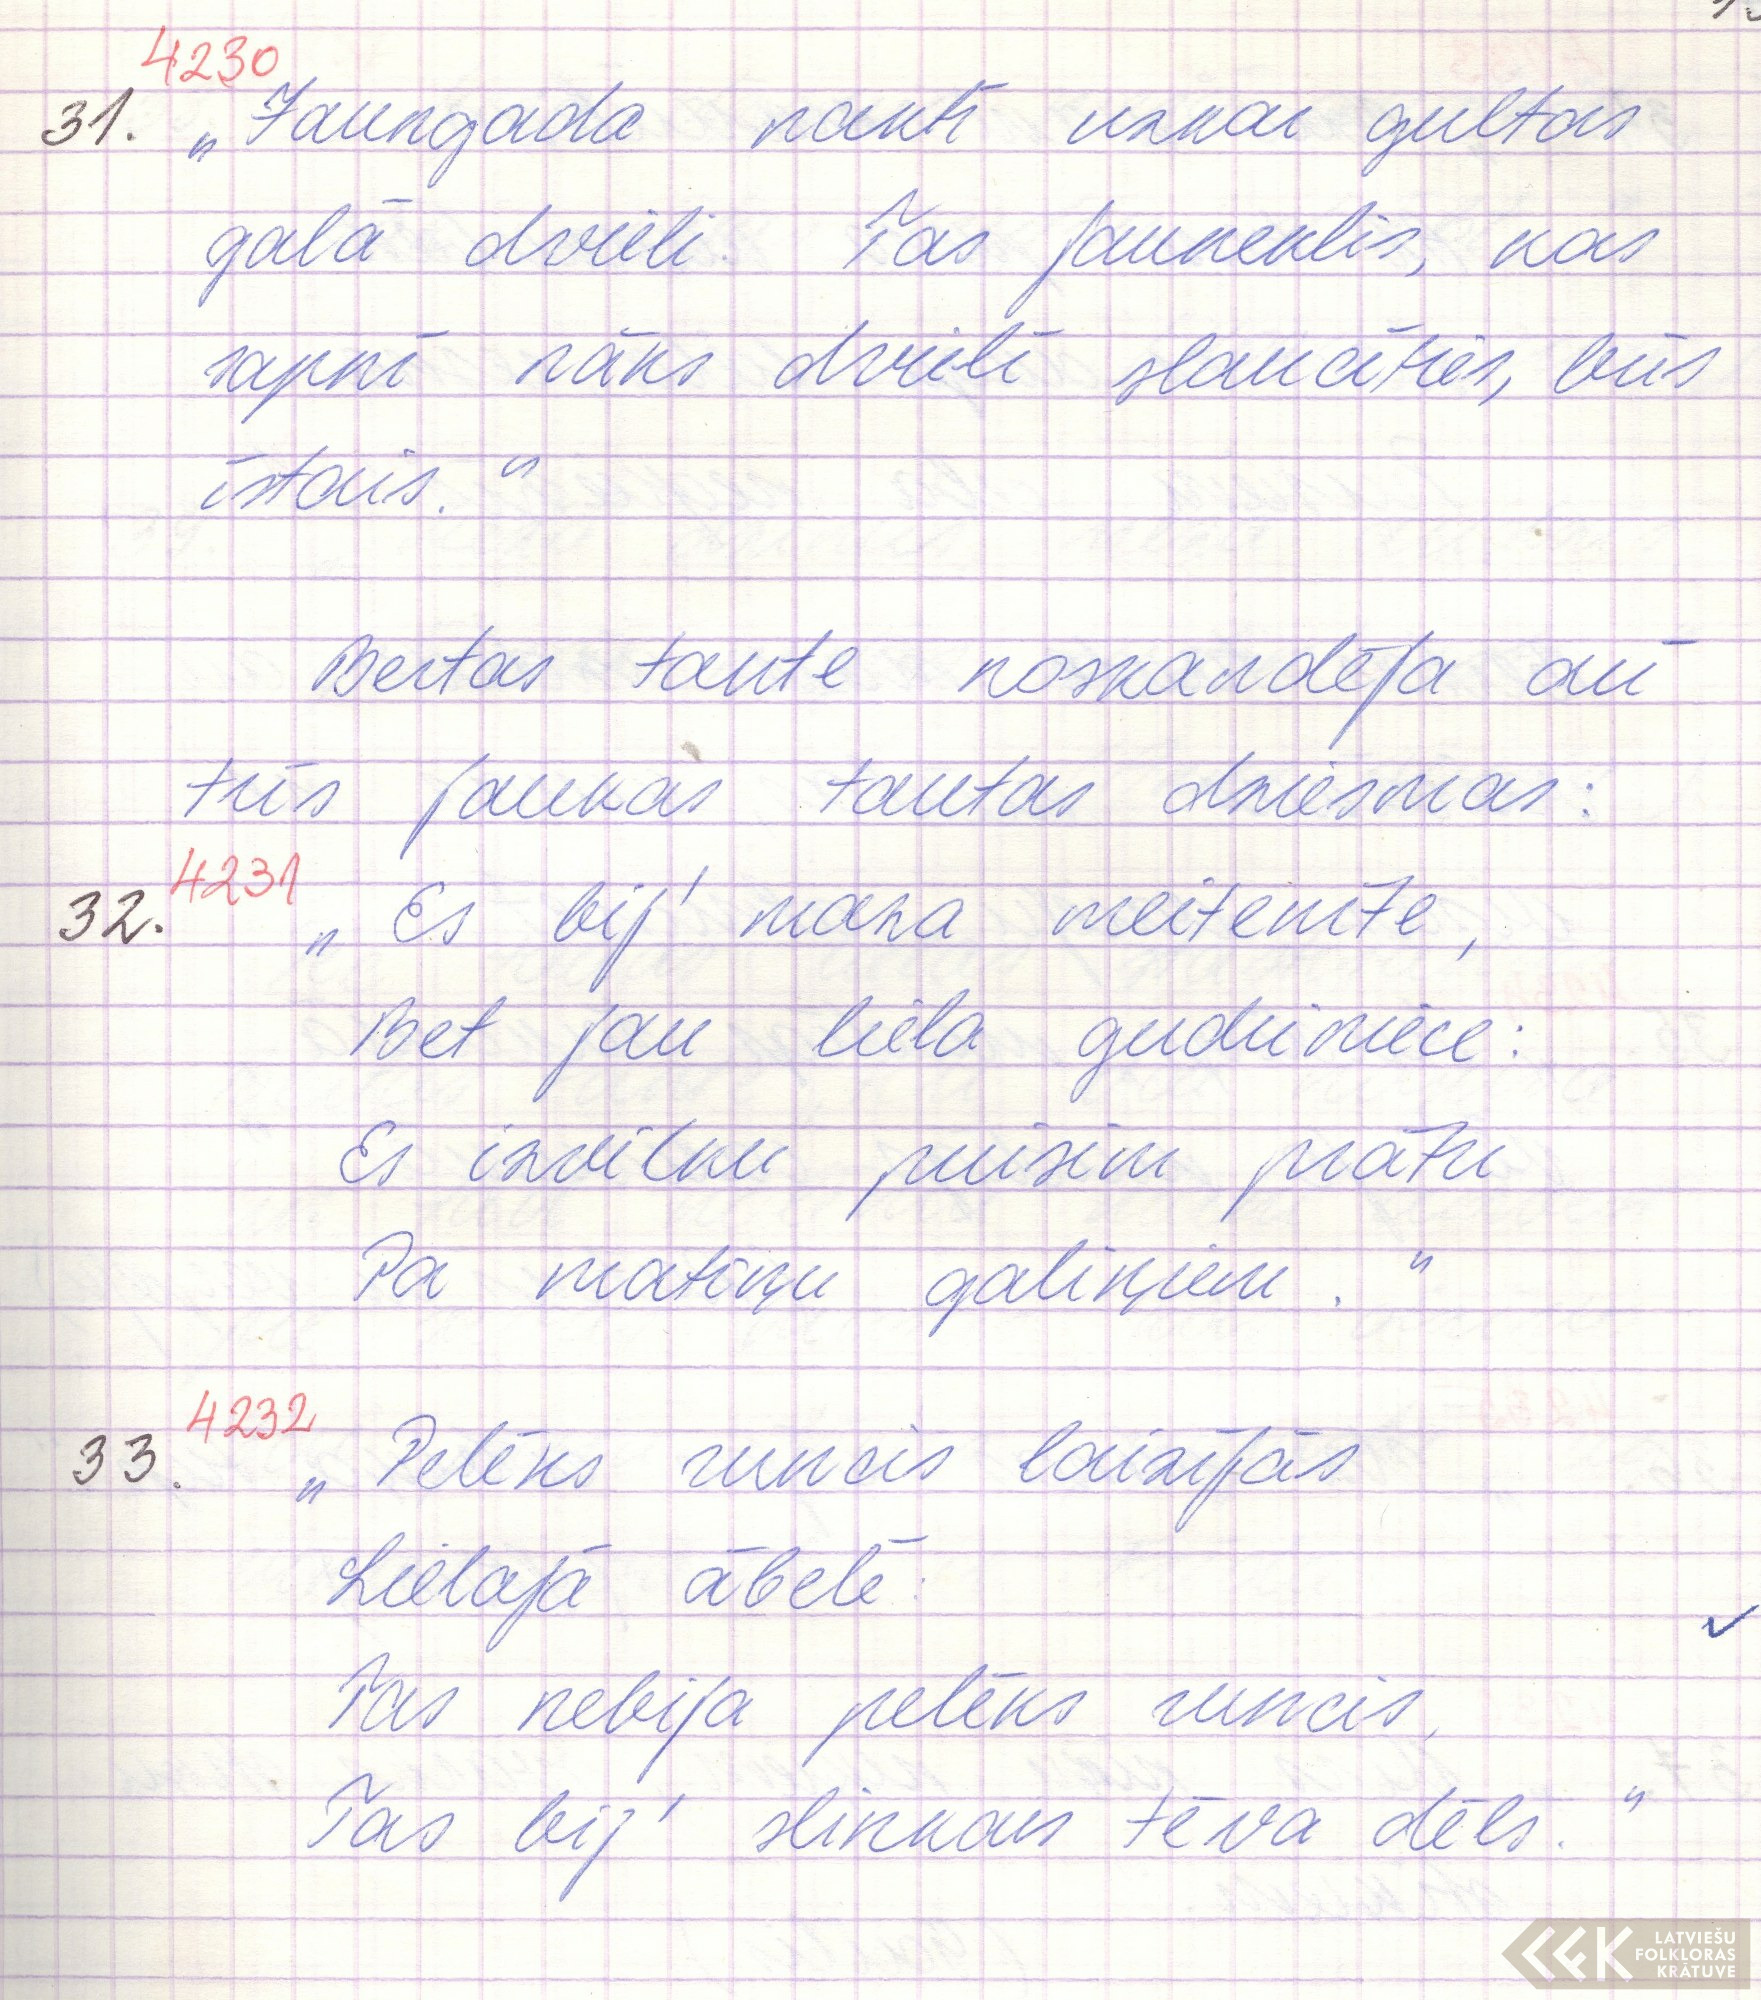 4230
31. „Jaungada naktī uzkar gultas
galā dvieli. Tas jauneklis, kas
sapnī nāks dvielī slaucīties, būs
īstais."
Bertas tante noskandēja arī
trīs jaukas tautas dziesmas:
4231
32. „Es bij' maza meitenīte,
Bet jau liela gudriniece:
Es izvilku puisim prātu
Pa matiņu galiņiem."
4232
33. „Pelēks runcis laizījās
Lielajā ābelē:
Tas nebija pelēks runcis,
Tas bij' slinkais tēva dēls."
LATVIEŠU
FOLKLORAS
KRĀTUVE